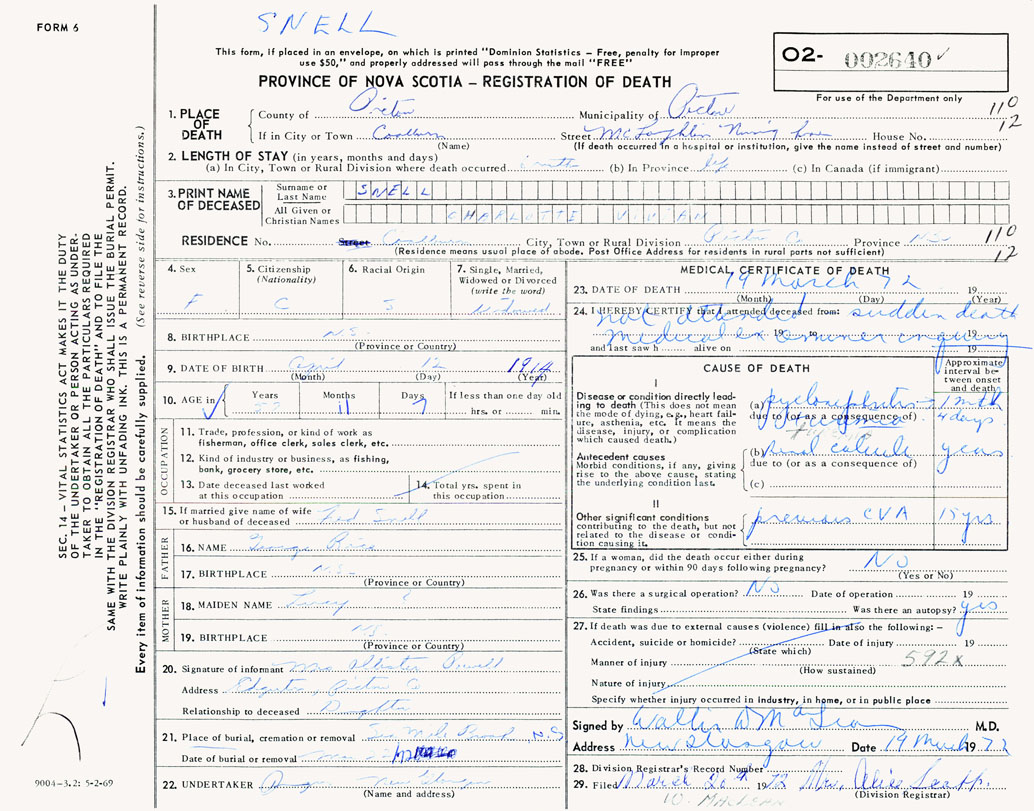 FORM 6
SNELL
This form, if placed in an envelope, on which is printed "Dominion Statistics – Free, penalty for improper
use $50," and properly addressed will pass through the mail "FREE"
PROVINCE OF NOVA SCOTIA – REGISTRATION OF DEATH
O2- 002640 ✓
For use of the Department only
110
12
1. PLACE OF DEATH
County of Pictou Municipality of Pictou
If in City or Town Coalburn Street McLaughlin Nursing Home House No.
(Name) (If death occurred in a hospital or institution, give the name instead of street and number)
2. LENGTH OF STAY (in years, months and days)
(a) In City, Town or Rural Division where death occurred 1 mth (b) In Province life (c) In Canada (if immigrant)
3. PRINT NAME OF DECEASED
Surname or Last Name SNELL
All Given or Christian Names CHARLOTTE VIVIAN
RESIDENCE No. Street Coalburn City, Town or Rural Division Pictou Co Province N.S. 110
(Residence means usual place of abode. Post Office Address for residents in rural parts not sufficient) 12
4. Sex
F
5. Citizenship (Nationality)
C
6. Racial Origin
7. Single, Married, Widowed or Divorced (write the word)
Widowed
8. BIRTHPLACE N.S.
(Province or Country)
9. DATE OF BIRTH April 12 1914
(Month) (Day) (Year)
10. AGE in Years Months Days If less than one day old
✓ 11 7 hrs. or min.
OCCUPATION
11. Trade, profession, or kind of work as
fisherman, office clerk, sales clerk, etc.
12. Kind of industry or business, as fishing,
bank, grocery store, etc.
13. Date deceased last worked
at this occupation
14. Total yrs. spent in
this occupation
15. If married give name of wife
or husband of deceased Snell
FATHER
16. NAME George
17. BIRTHPLACE N.S.
(Province or Country)
MOTHER
18. MAIDEN NAME Lucy ?
19. BIRTHPLACE N.S.
(Province or Country)
20. Signature of informant Mrs
Address Pictou Co
Relationship to deceased Daughter
21. Place of burial, cremation or removal Mile , N.S
Date of burial or removal
22. UNDERTAKER New Glasgow
(Name and address)
MEDICAL CERTIFICATE OF DEATH
23. DATE OF DEATH 19 March 72 19
(Month) (Day) (Year)
24. I HEREBY CERTIFY that I attended deceased from: not attended sudden death
19 to 19 medical examiner enquiry
and last saw h alive on 19
CAUSE OF DEATH
Approximate interval between onset and death
I
Disease or condition directly leading to death (This does not
mean the mode of dying, e.g., heart failure, asthenia, etc. It means the
disease, injury, or complication
which caused death.)
(a) pyelonephritis 1 mth
due to (or as a consequence of) uremia 4 days
Antecedent causes
Morbid conditions, if any, giving
rise to the above cause, stating
the underlying condition last.
(b) renal calculi years
due to (or as a consequence of)
(c)
II
Other significant conditions
contributing to the death, but not
related to the disease or condition causing it.
previous CVA 15 yrs
25. If a woman, did the death occur either during
pregnancy or within 90 days following pregnancy? No
(Yes or No)
26. Was there a surgical operation? No Date of operation 19
State findings Was there an autopsy? yes
27. If death was due to external causes (violence) fill in also the following: –
Accident, suicide or homicide? Date of injury 19
(State which)
Manner of injury 592x
(How sustained)
Nature of injury
Specify whether injury occurred in industry, in home, or in public place
Signed by M.D.
Address New Glasgow Date 19 March 1972
28. Division Registrar's Record Number
29. Filed March 20th 1972 Mrs. Alice
(Division Registrar)
SEC. 14 – VITAL STATISTICS ACT MAKES IT THE DUTY
OF THE UNDERTAKER OR PERSON ACTING AS UNDER-
TAKER TO OBTAIN ALL THE PARTICULARS REQUIRED
IN THE "REGISTRATION OF DEATH" AND TO FILE THE
SAME WITH THE DIVISION REGISTRAR WHO SHALL ISSUE THE BURIAL PERMIT.
WRITE PLAINLY WITH UNFADING INK. THIS IS A PERMANENT RECORD.
Every item of information should be carefully supplied. (See reverse side for instructions.)
9004-3.2: 5-2-69